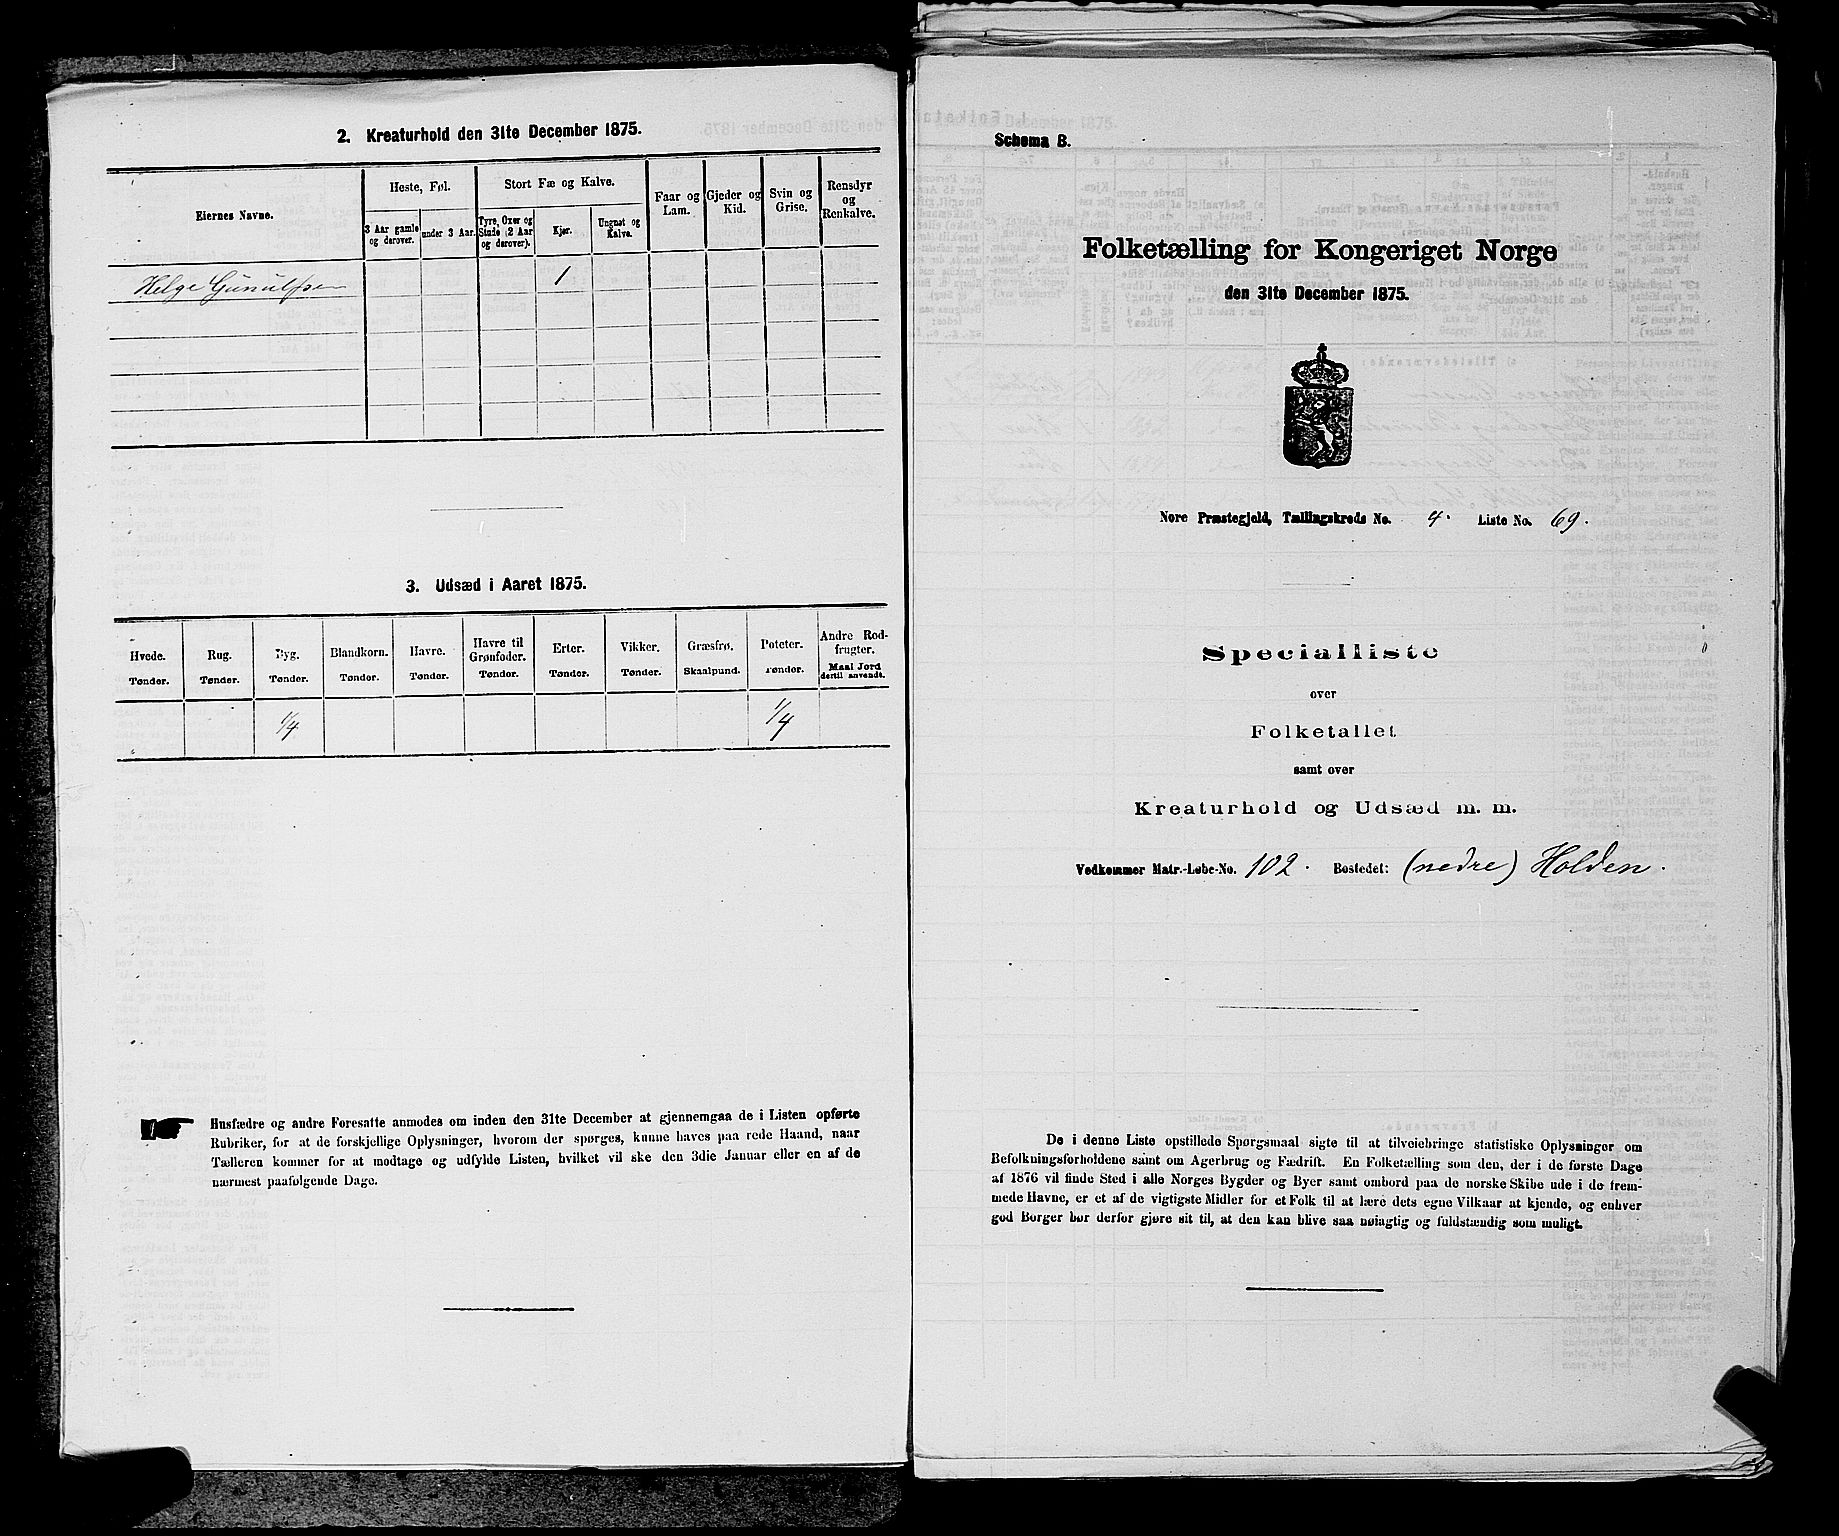 2. Kreaturhold den 31te December 1875.
Eiernes Navne.
Heste, Føl.
Stort Fæ og Kalve.
Faar og Lam.
Gjeder og Kid.
Svin og Grise.
Rensdyr og Renkalve.
3 Aar gamle og derover.
under 3 Aar.
Tyre, Oxer og Stude (2 Aar og derover).
Kjør.
Ungnøt og Kalve.
Helge Gunulfsen 1
3. Udsæd i Aaret 1875.
Hvede. Rug. Byg. Blandkorn. Havre. Havre til Grønfoder. Erter. Vikker. Græsfrø. Poteter. Andre Rodfrugter.
Tønder. Tønder. Tønder. Tønder. Tønder. Tønder. Tønder. Tønder. Skaalpund. Tønder. Maal Jord dertil anvendt.
1/4 1/4
Husfædre og andre Foresatte anmodes om inden den 31te December at gjennemgaa de i Listen opførte
Rubriker, for at de forskjellige Oplysninger, hvorom der spørges, kunne haves paa rede Haand, naar
Tælleren kommer for at modtage og udfylde Listen, hvilket vil ske den 3die Januar eller en af de
nærmest paafølgende Dage.
Schema B.
Folketælling for Kongeriget Norge
den 31te December 1875.
Nore Præstegjeld, Tællingskreds No. 4. Liste No. 69.
Specialliste
over
Folketallet
samt over
Kreaturhold og Udsæd m. m.
Vedkommer Matr.-Løbe-No. 102. Bostedet: (nedre) Holden.
De i denne Liste opstillede Spørgsmaal sigte til at tilveiebringe statistiske Oplysninger om
Befolkningsforholdene samt om Agerbrug og Fædrift. En Folketælling som den, der i de første Dage
af 1876 vil finde Sted i alle Norges Bygder og Byer samt ombord paa de norske Skibe ude i de frem-
mede Havne, er et af de vigtigste Midler for et Folk til at lære dets egne Vilkaar at kjende, og enhver
god Borger bør derfor gjøre sit til, at den kan blive saa nøiagtig og fuldstændig som muligt.